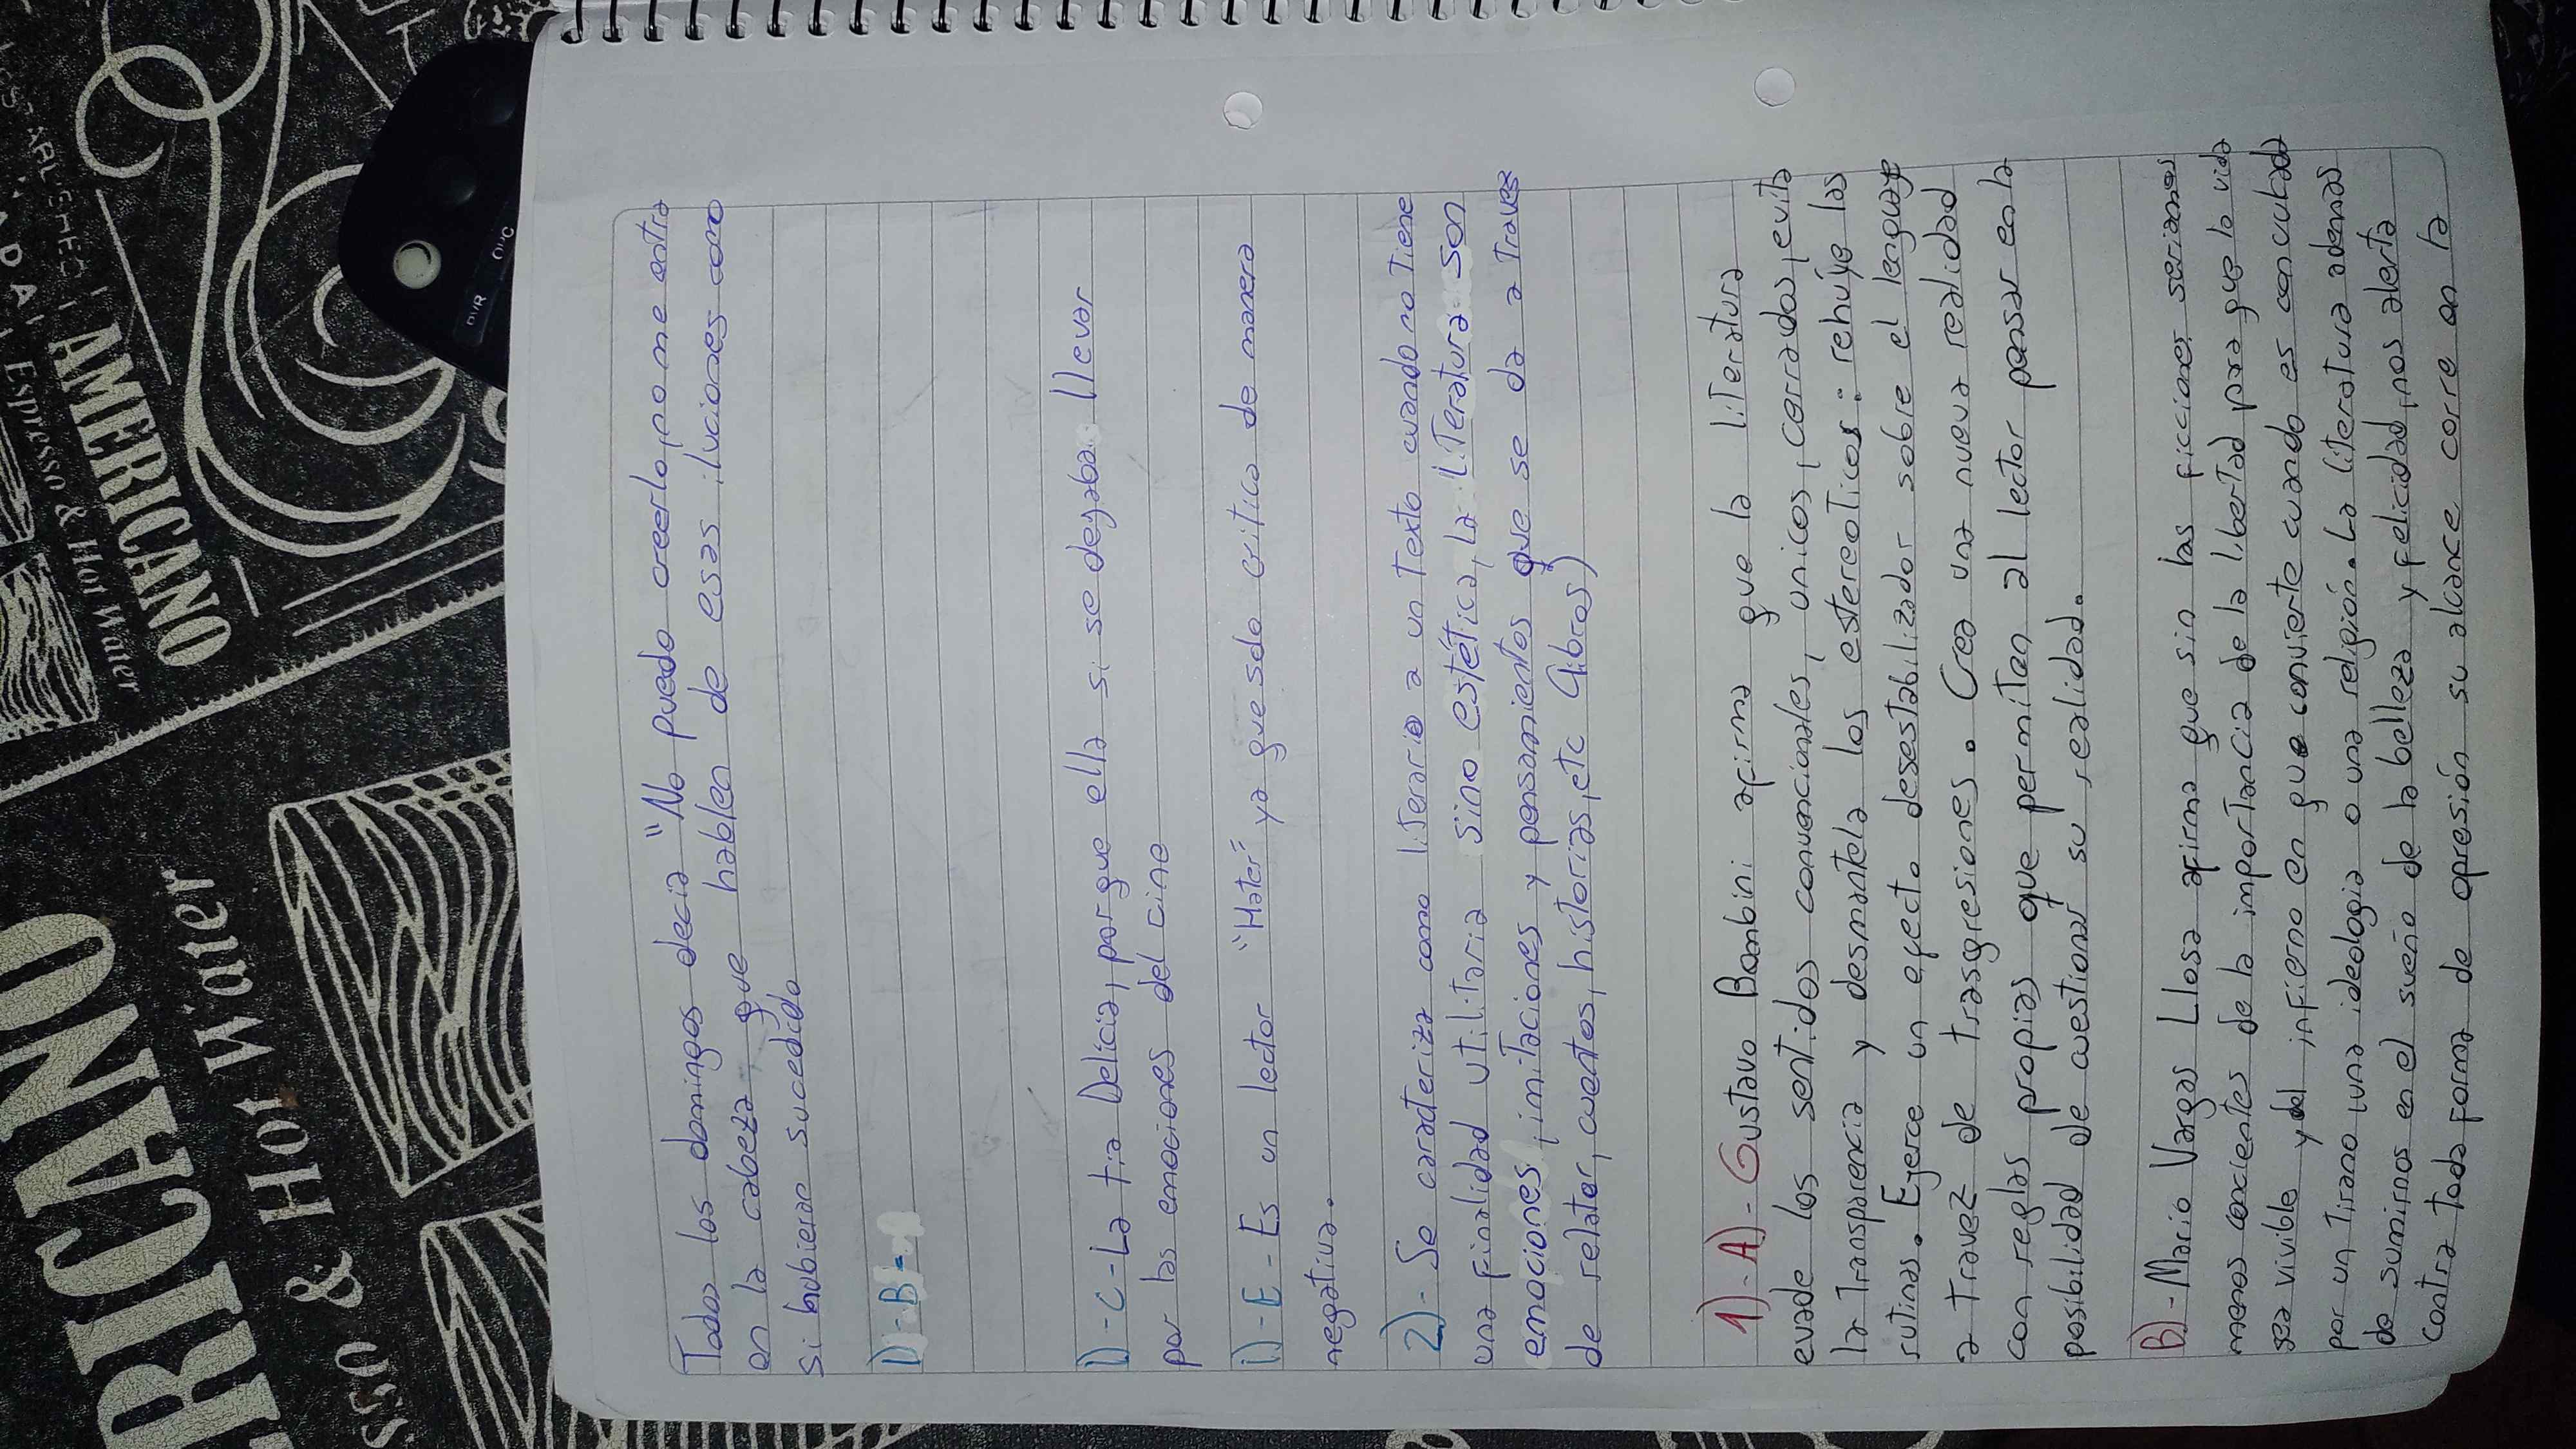 Todos los domingos decia "No puedo creerlo, no me entra
en la cabeza que hablen de esas iluciones como
si hubieran sucedido
1)-B-
1)-C-La tia Delicia, porque ella si se dejaba llevar
por las emociones del cine
1)-E-Es un lector "Hater" ya que solo critica de manera
negativa.
2)-Se caracteriza como literario a un Texto cuando no Tiene
una finalidad utilitaria sino estética, la LiTeratura son
emociones, imitaciones y pensamientos que se da a Traves
de relatar, cuentos, historias, etc (libros)
1)-A)-Gustavo Bombini afirma que la liTeratura
evade los sentidos convencionales, unicos, cerrados, evita
la Transparencia y desmantela los estereoTicos: rehúye las
rutinas. Ejerce un efecto desestabilizador sobre el lenguaje
a Travez de trasgresiones. Crea una nueva realidad
con reglas propias que permiTan al lector pensar en la
posibilidad de cuestionar su realidad.
B)-Mario Vargas Llosa afirma que sin las ficciones seriamos
menos concientes de la imporTancia de la liberTad para que la vida
sea vivible y del infierno en que convierte cuando es conculcada
por un Tirano, una ideologia o una religión. La literatura ademas
de sumirnos en el sueño de la belleza y felicidad, nos alerta
Contra toda forma de opresión su alcance corre en la
AMERICANO
Espresso & Hot Water
RICANO
sso & Hot Water
DVR